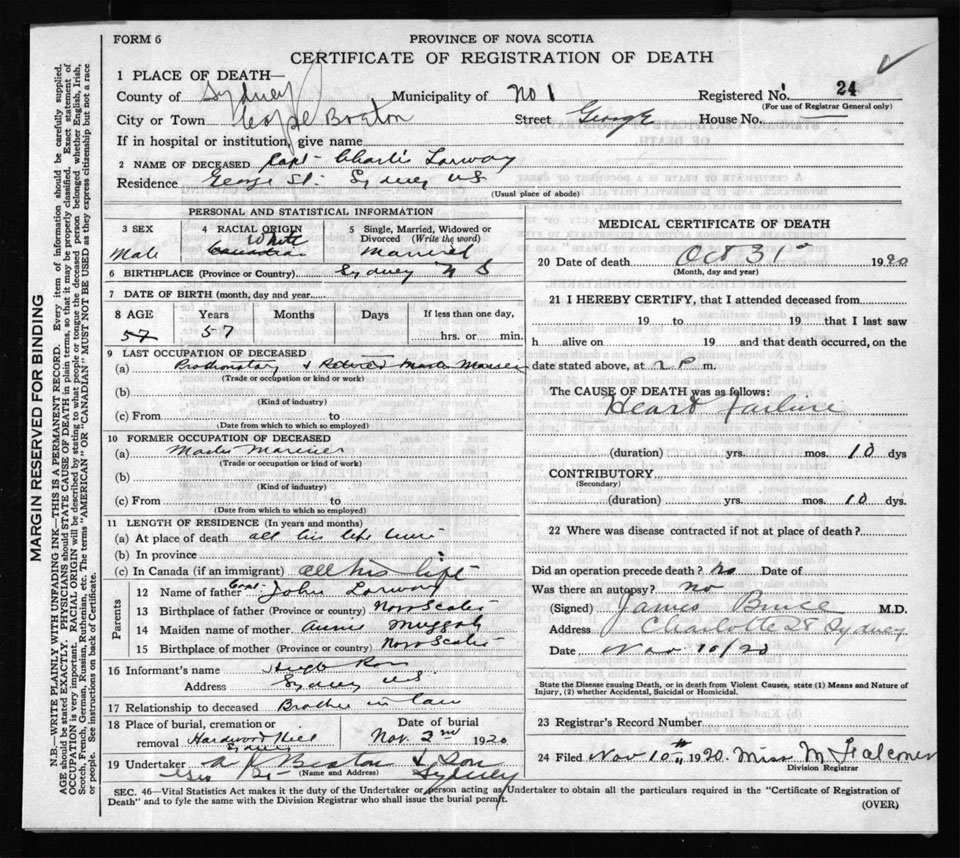 FORM 6
PROVINCE OF NOVA SCOTIA
CERTIFICATE OF REGISTRATION OF DEATH
1 PLACE OF DEATH—
County of Sydney Municipality of No 1 Registered No. 24
(For use of Registrar General only)
City or Town Cape Breton Street George House No. —
If in hospital or institution, give name
2 NAME OF DECEASED Capt Charlie Lorway
Residence George St. Sydney NS
(Usual place of abode)
PERSONAL AND STATISTICAL INFORMATION
3 SEX Male
4 RACIAL ORIGIN White Canadian
5 Single, Married, Widowed or Divorced (Write the word) Married
6 BIRTHPLACE (Province or Country) Sydney N S
7 DATE OF BIRTH (month, day and year)
8 AGE 57 Years 57 Months Days If less than one day, hrs. or min.
9 LAST OCCUPATION OF DECEASED
(a) Prothonotary & Retired Master Mariner
(Trade or occupation or kind or work)
(b)
(Kind of industry)
(c) From to
(Date from which to which so employed)
10 FORMER OCCUPATION OF DECEASED
(a) Master Mariner
(Trade or occupation or kind of work)
(b)
(Kind of industry)
(c) From to
(Date from which to which so employed)
11 LENGTH OF RESIDENCE (In years and months)
(a) At place of death all his life time
(b) In province
(c) In Canada (if an immigrant) all his life
Parents
12 Name of father Capt John Lorway
13 Birthplace of father (Province or country) Nova Scotia
14 Maiden name of mother Annie Muggah
15 Birthplace of mother (Province or country) Nova Scotia
16 Informant's name Hugh Ross
Address Sydney NS
17 Relationship to deceased Brother in law
18 Place of burial, cremation or removal Hardwood Hill Sydney
Date of burial Nov. 2nd 1920
19 Undertaker A J Beaton & Son
Geo St Sydney
(Name and Address)
MEDICAL CERTIFICATE OF DEATH
20 Date of death Oct 31 1920
(Month, day and year)
21 I HEREBY CERTIFY, that I attended deceased from
19 to 19 that I last saw
h alive on 19 and that death occurred, on the
date stated above, at 2 P m.
The CAUSE OF DEATH was as follows:
Heart failure
(duration) yrs. mos. 10 dys
CONTRIBUTORY
(Secondary)
(duration) yrs. mos. 10 dys.
22 Where was disease contracted if not at place of death?
Did an operation precede death? No Date of
Was there an autopsy? No
(Signed) James Bruce M.D.
Address Charlotte St Sydney
Date Nov 10/20
State the Disease causing Death, or in death from Violent Causes, state (1) Means and Nature of
Injury, (2) whether Accidental, Suicidal or Homicidal.
23 Registrar's Record Number
24 Filed Nov 10th 1920. Miss M Falconer
Division Registrar
SEC. 46—Vital Statistics Act makes it the duty of the Undertaker or person acting as Undertaker to obtain all the particulars required in the "Certificate of Registration of
Death" and to fyle the same with the Division Registrar who shall issue the burial permit.
(OVER)
MARGIN RESERVED FOR BINDING
N.B.—WRITE PLAINLY WITH UNFADING INK—THIS IS A PERMANENT RECORD. Every item of information should be carefully supplied.
AGE should be stated EXACTLY. PHYSICIANS should STATE CAUSE OF DEATH in plain terms, so that it may be properly classified. Exact statement of
OCCUPATION is very important. RACIAL ORIGIN will be described by stating to what people or tongue the deceased person belonged whether English, Irish,
Scotch, French, German, Russian, Ruthenian, etc. The terms "AMERICAN" OR "CANADIAN" MUST NOT BE USED as they express citizenship but not a race
or people. See instructions on back of Certificate.